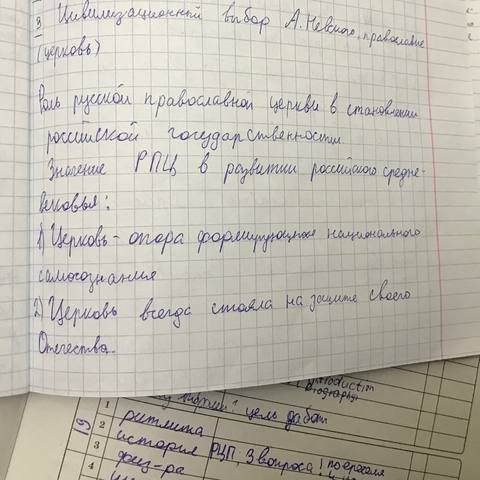 3 Цивилизационный выбор А. Невского, православие
(церковь)
Роль русской православной церкви в становлении
российской государственности.
Значение РПЦ в развитии российского средне-
вековья:
1) Церковь - опора формирующегося национального
самосознания
2) Церковь всегда стояла на защите своего
Отечества.
introduction
biography
цель работ
19
1
2 ритмика
3 история РЦП, 3 вопроса!
4 физ-ра